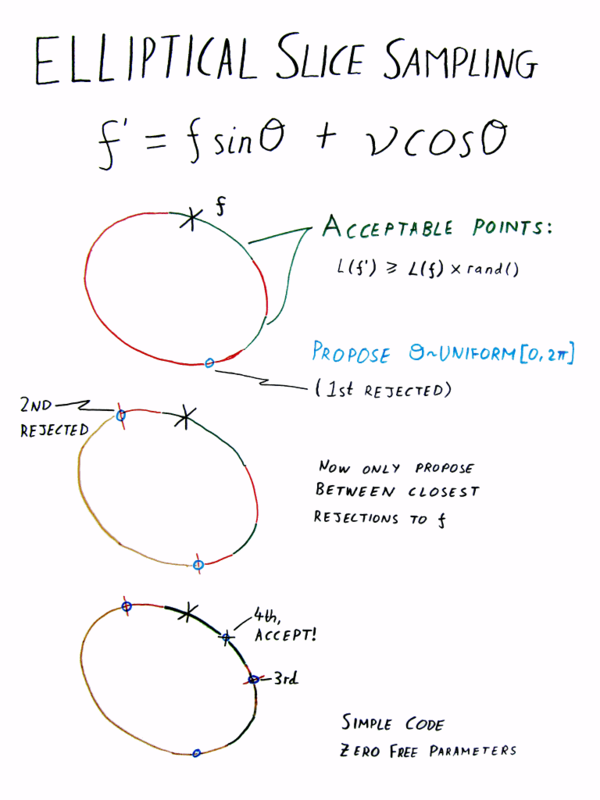 ELLIPTICAL SLICE SAMPLING
f' = f sinθ + ν cosθ
f
ACCEPTABLE POINTS:
L(f') ⩾ L(f) × rand()
PROPOSE θ~UNIFORM[0, 2π]
(1st REJECTED)
2ND
REJECTED
NOW ONLY PROPOSE
BETWEEN CLOSEST
REJECTIONS TO f
4th,
ACCEPT!
3rd
SIMPLE CODE
ZERO FREE PARAMETERS